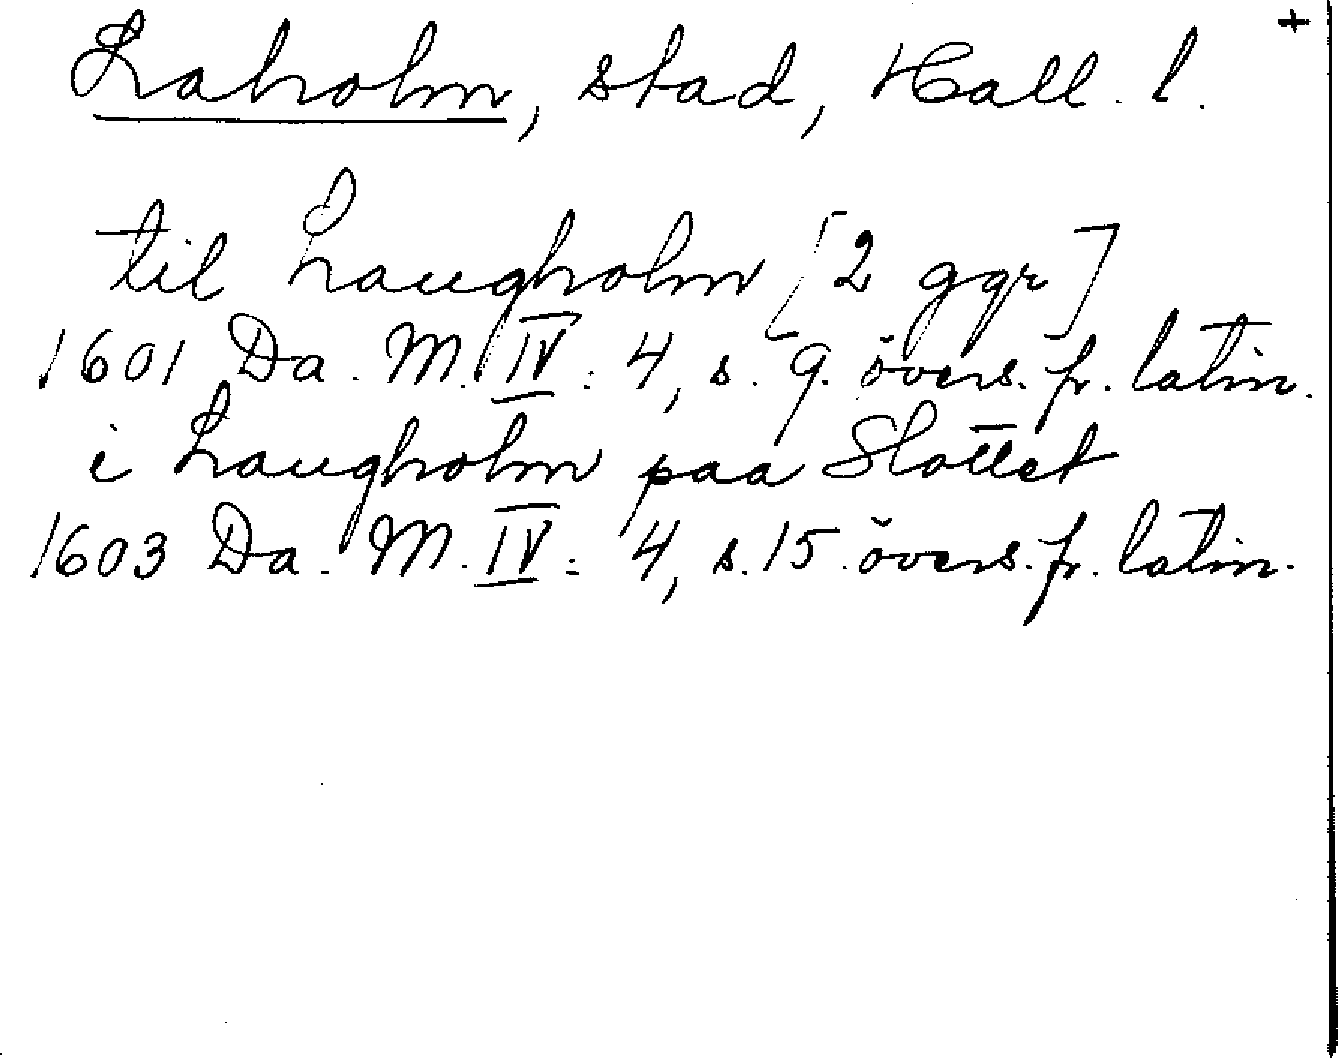 Laholm, stad, Hall. l. +
til Laugholm [2 ggr]
1601 Da. M. IV: 4, s. 9. övers. fr. latin.
i Laugholm paa Slottet
1603 Da. M. IV: 4, s. 15. övers. fr. latin.